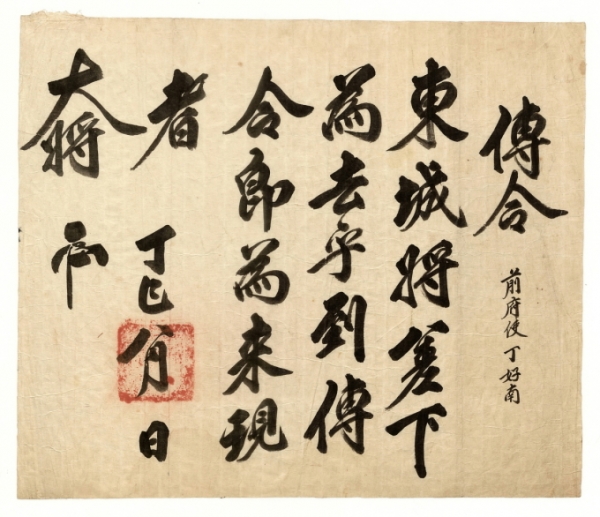 傳令
前府使丁好南
東城將差下
爲去乎到傳
令卽爲來現
者 丁巳八月 日
大將